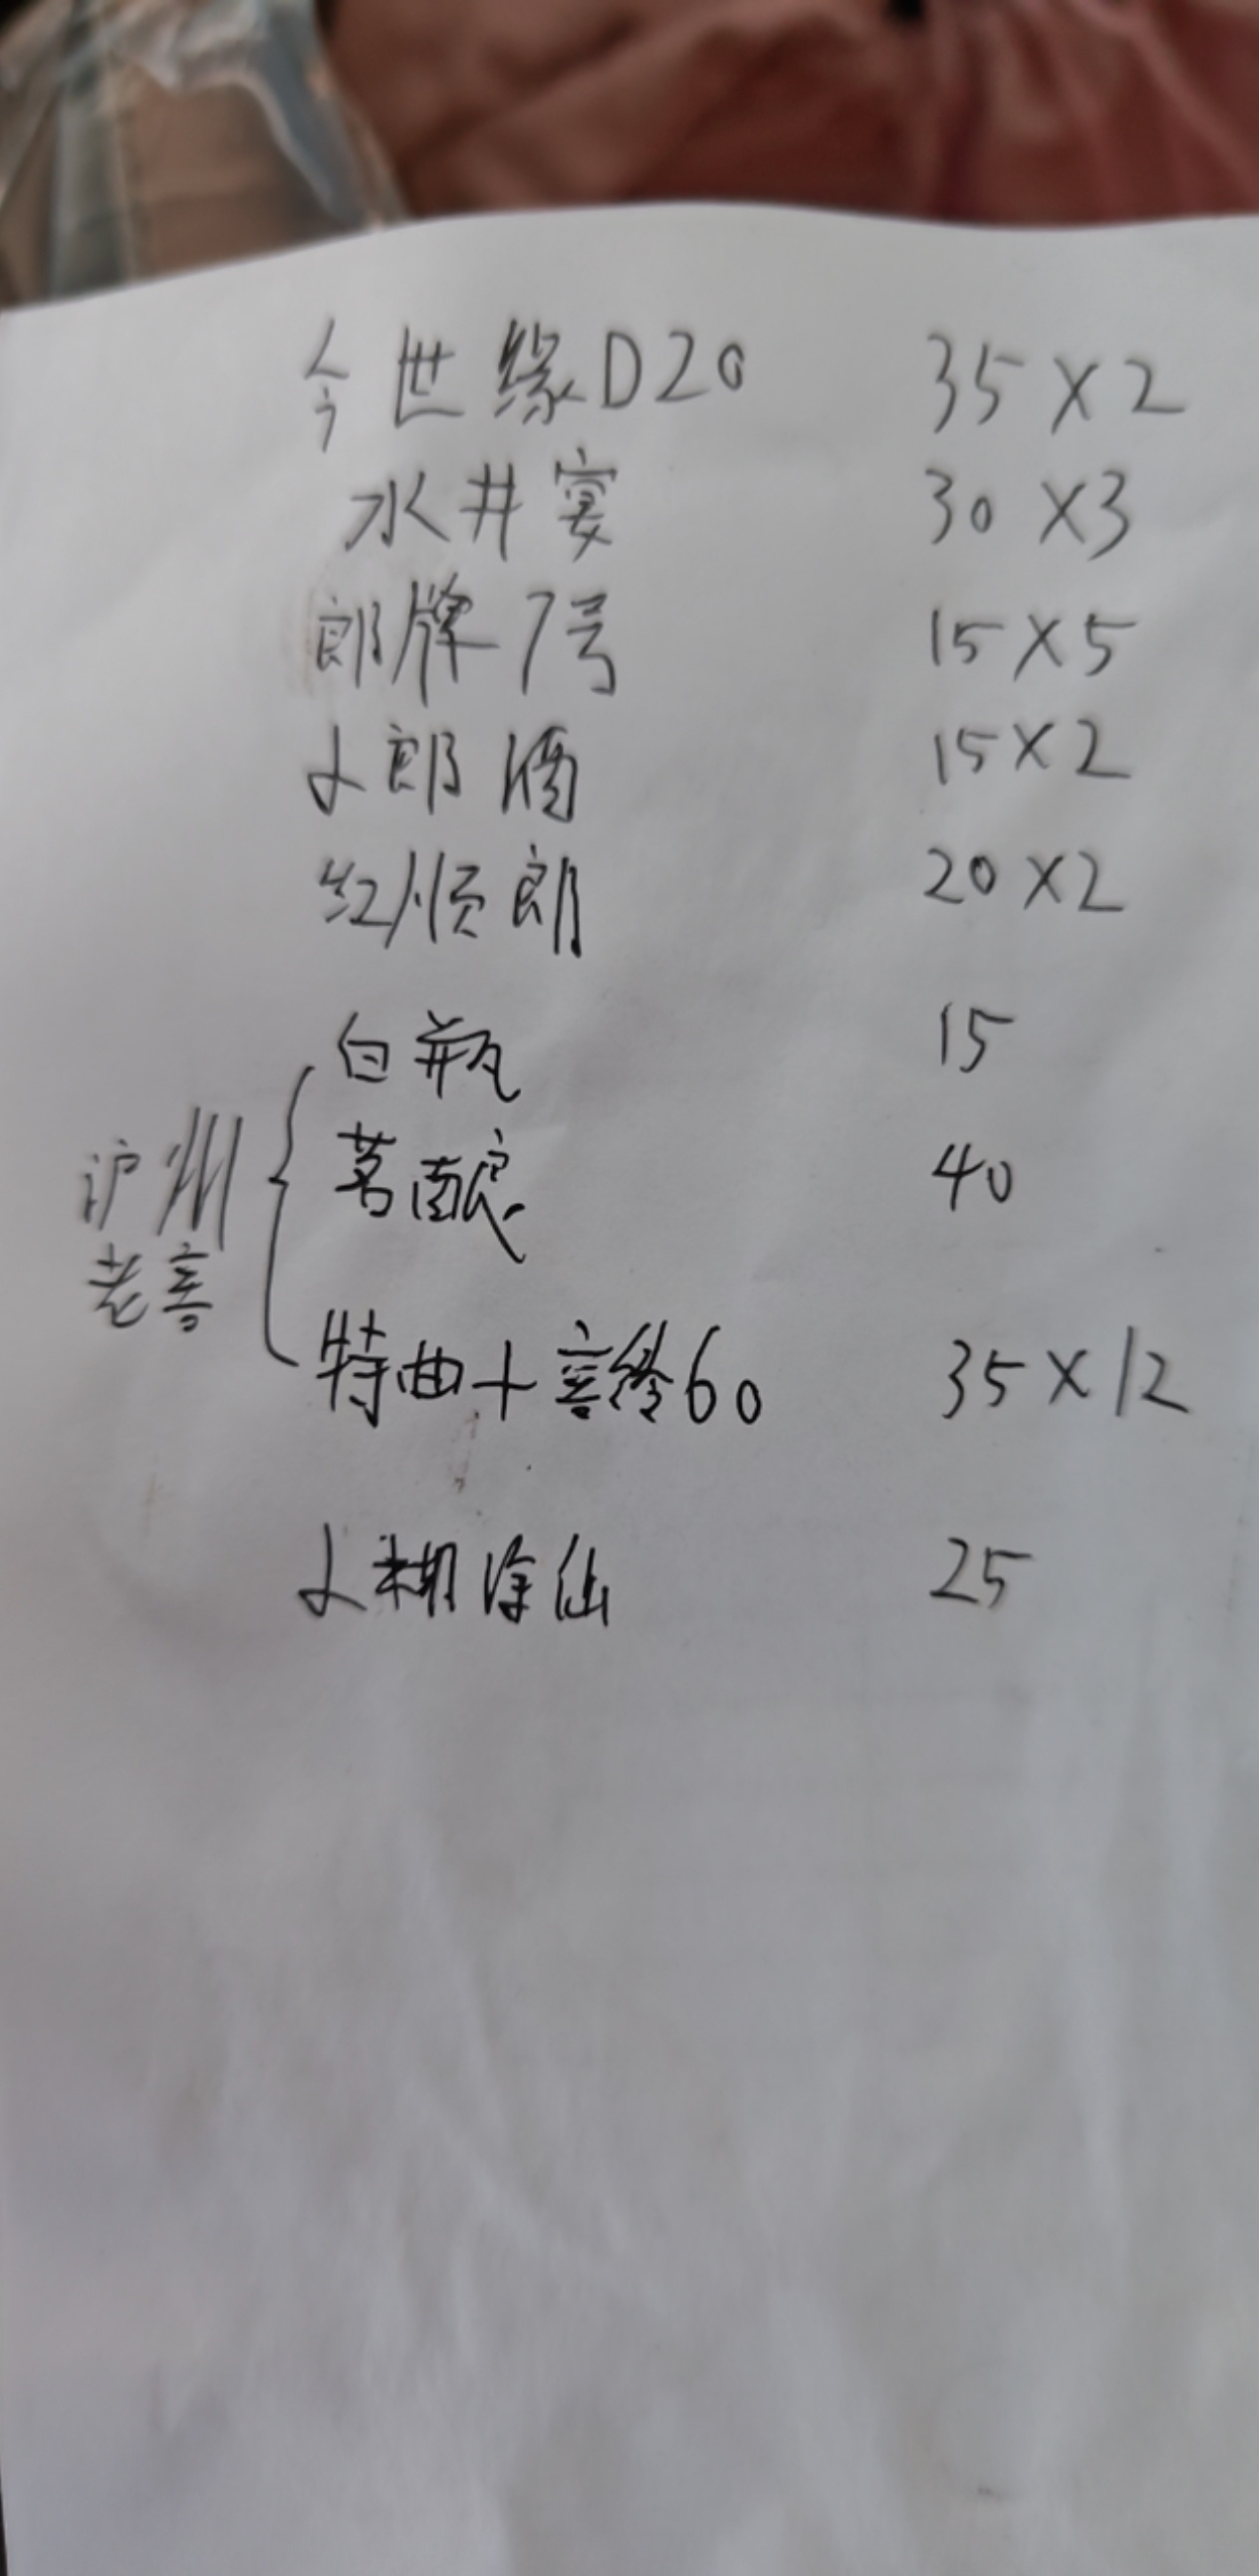 今世缘D20 35×2
水井宴 30×3
郎牌7号 15×5
小郎酒 15×2
红顺郎 20×2
白瓶 15
泸州
茗酿 40
老窖
特曲+窖龄60 35×12
小糊涂仙 25